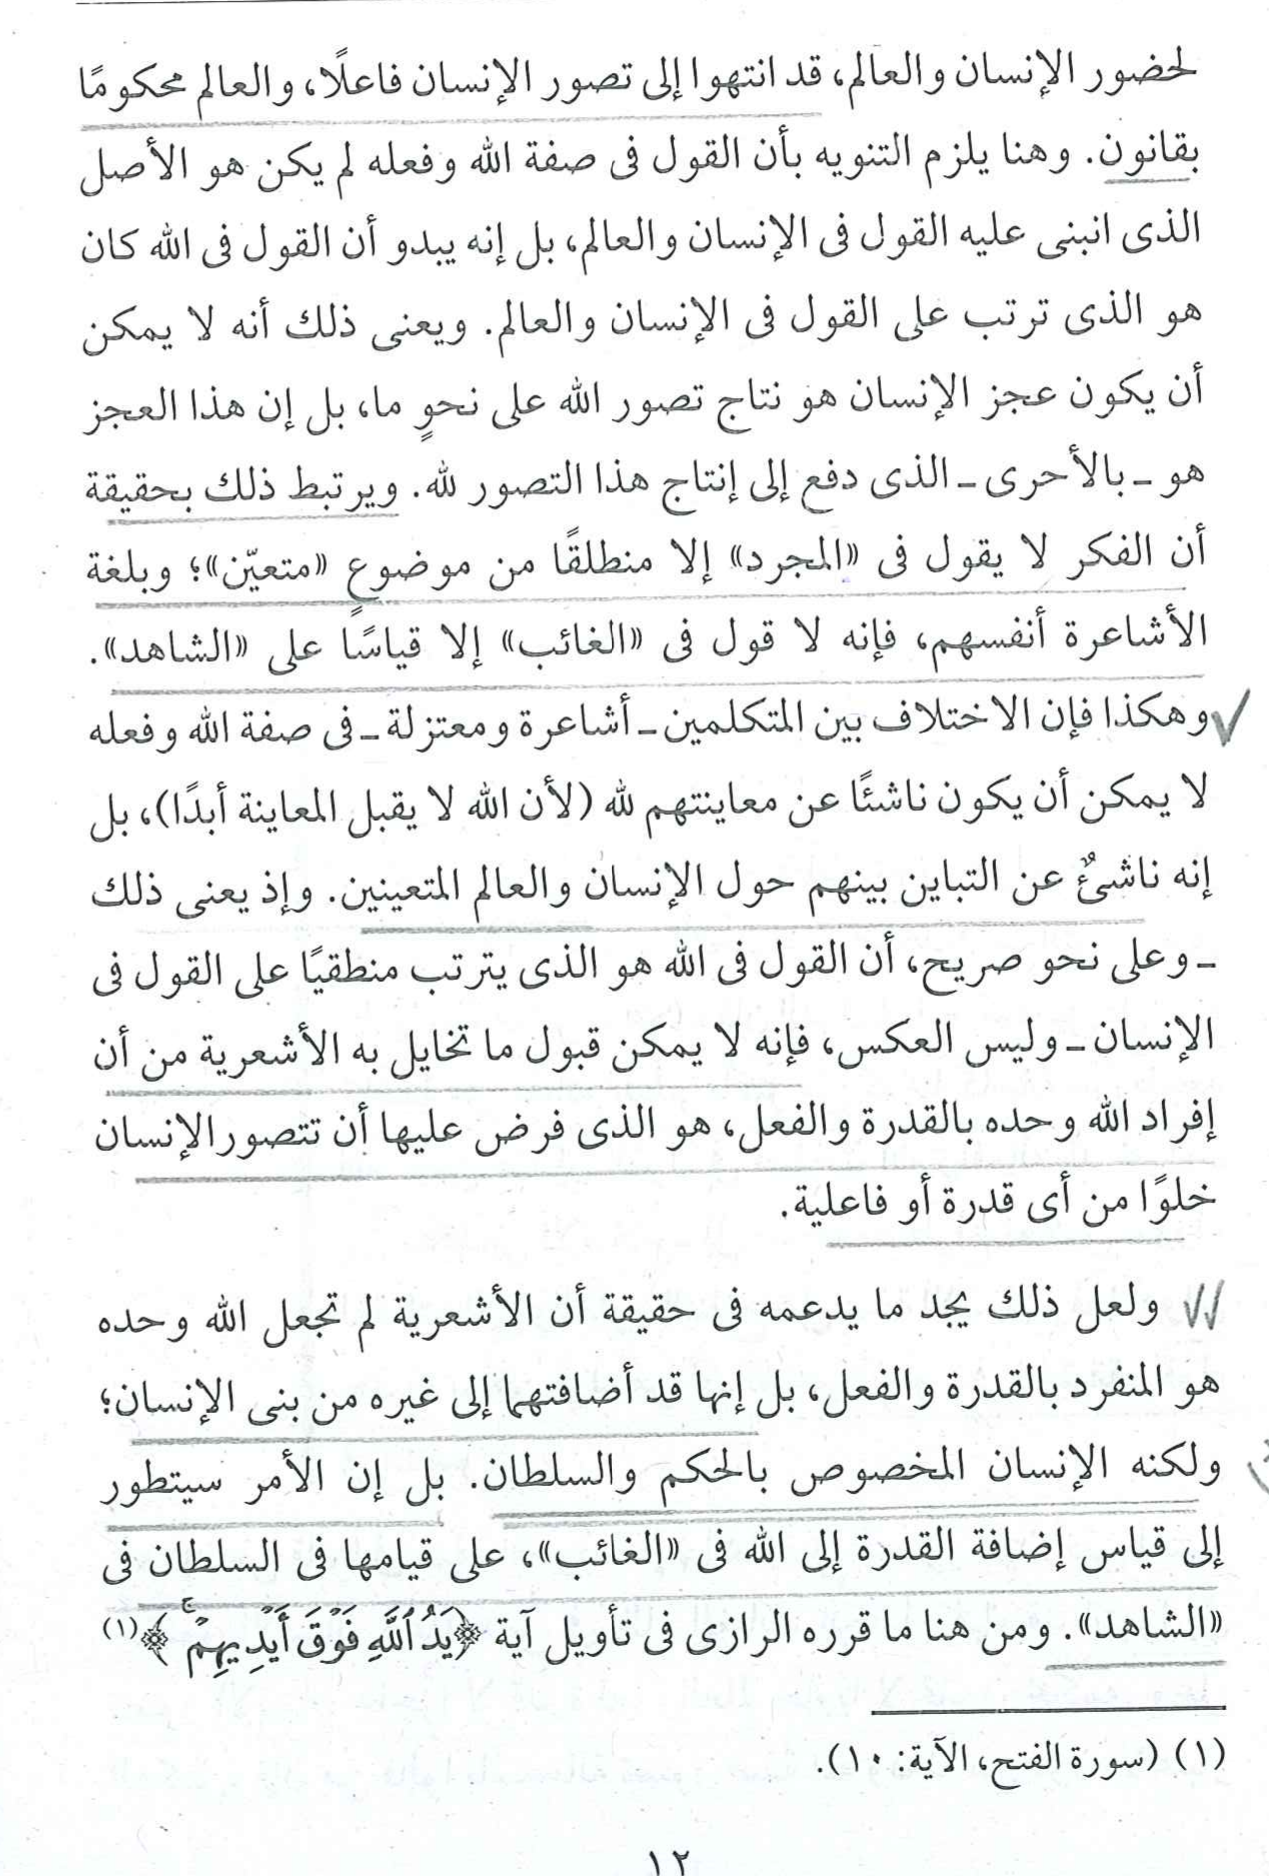 لحضور الإنسان والعالم، قد انتهوا إلى تصور الإنسان فاعلًا، والعالم محكومًا
بقانون. وهنا يلزم التنويه بأن القول فى صفة الله وفعله لم يكن هو الأصل
الذى انبنى عليه القول فى الإنسان والعالم، بل إنه يبدو أن القول فى الله كان
هو الذى ترتب على القول فى الإنسان والعالم. ويعنى ذلك أنه لا يمكن
أن يكون عجز الإنسان هو نتاج تصور الله على نحوٍ ما، بل إن هذا العجز
هو ـ بالأحرى ـ الذى دفع إلى إنتاج هذا التصور لله. ويرتبط ذلك بحقيقة
أن الفكر لا يقول فى «المجرد» إلا منطلقًا من موضوعٍ «متعيّن»؛ وبلغة
الأشاعرة أنفسهم، فإنه لا قول فى «الغائب» إلا قياسًا على «الشاهد».
وهكذا فإن الاختلاف بين المتكلمين ـ أشاعرة ومعتزلة ـ فى صفة الله وفعله
لا يمكن أن يكون ناشئًا عن معاينتهم لله (لأن الله لا يقبل المعاينة أبدًا)، بل
إنه ناشئٌ عن التباين بينهم حول الإنسان والعالم المتعينين. وإذ يعنى ذلك
ـ وعلى نحو صريح، أن القول فى الله هو الذى يترتب منطقيًا على القول فى
الإنسان ـ وليس العكس، فإنه لا يمكن قبول ما تخايل به الأشعرية من أن
إفراد الله وحده بالقدرة والفعل، هو الذى فرض عليها أن تتصور الإنسان
خلوًا من أى قدرة أو فاعلية.
ولعل ذلك يجد ما يدعمه فى حقيقة أن الأشعرية لم تجعل الله وحده
هو المنفرد بالقدرة والفعل، بل إنها قد أضافتهما إلى غيره من بنى الإنسان؛
ولكنه الإنسان المخصوص بالحكم والسلطان. بل إن الأمر سيتطور
إلى قياس إضافة القدرة إلى الله فى «الغائب»، على قيامها فى السلطان فى
«الشاهد». ومن هنا ما قرره الرازى فى تأويل آية ﴿يَدُ ٱللَّهِ فَوْقَ أَيْدِيهِمْ ۚ﴾(١)
(١) (سورة الفتح، الآية: ١٠).
١٢